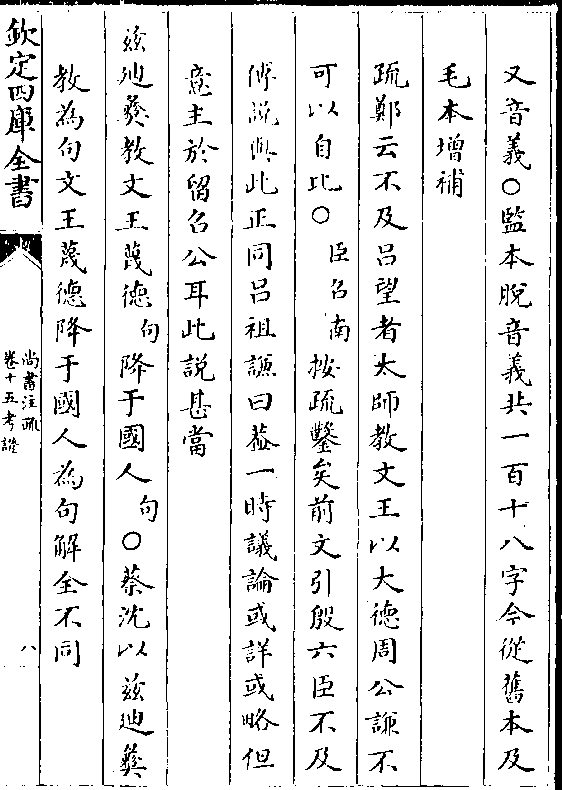 又音義○監本脫音義共一百十八字今從舊本及
毛本增補
疏鄭云不及呂望者太師教文王以大德周公謙不
可以自比○臣召南按疏鑿矣前文引殷六臣不及
傅說與此正同呂祖謙曰蓋一時議論或詳或略但
意主於留召公耳此說甚當
茲迪彝教文王蔑德句降于國人句○蔡沈以茲迪彝
教為句文王蔑德降于國人為句解全不同
欽定四庫全書
尚書注疏
卷十五考證
八